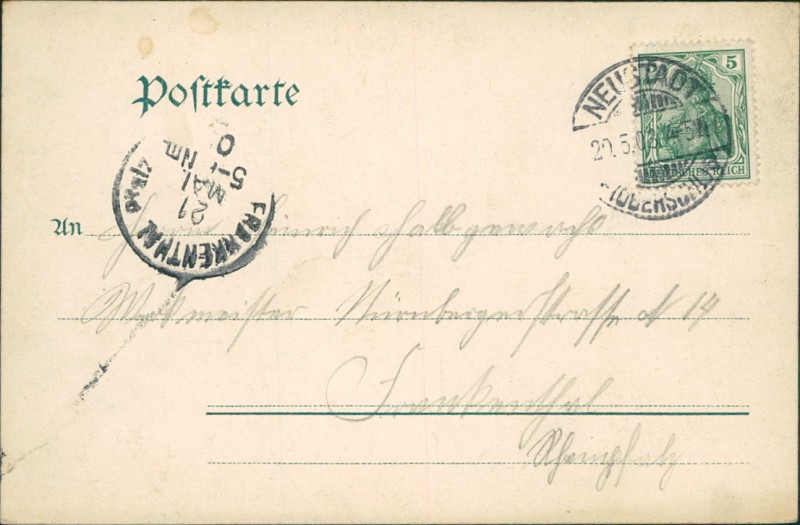 Postkarte
5
DEUTSCHES REICH
NEUSTADT
20.5.0
(OBERSCHL
FRANKENTHAL Pfalz
21
MAI
5- Nm.
0
An Herrn Heinrich Halbgewachs
Werkmeister Nürnbergerstrasse № 14
Frankenthal
Rheinpfalz